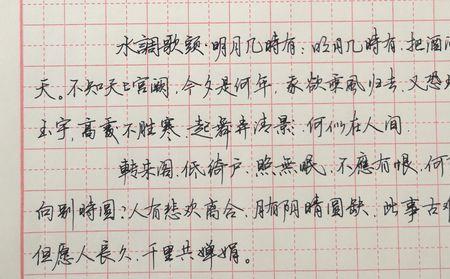 水調歌頭·明月几時有:明月几時有,把酒
天。不知天上宫阙,今夕是何年,我欲乘風归去,又恐
玉宇,高處不胜寒.起舞弄清影,何似在人间.
轉朱阁,低绮户,照無眠.不應有恨,何
向别時圆?人有悲欢离合,月有阴晴圆缺,此事古
但愿人長久,千里共婵娟。